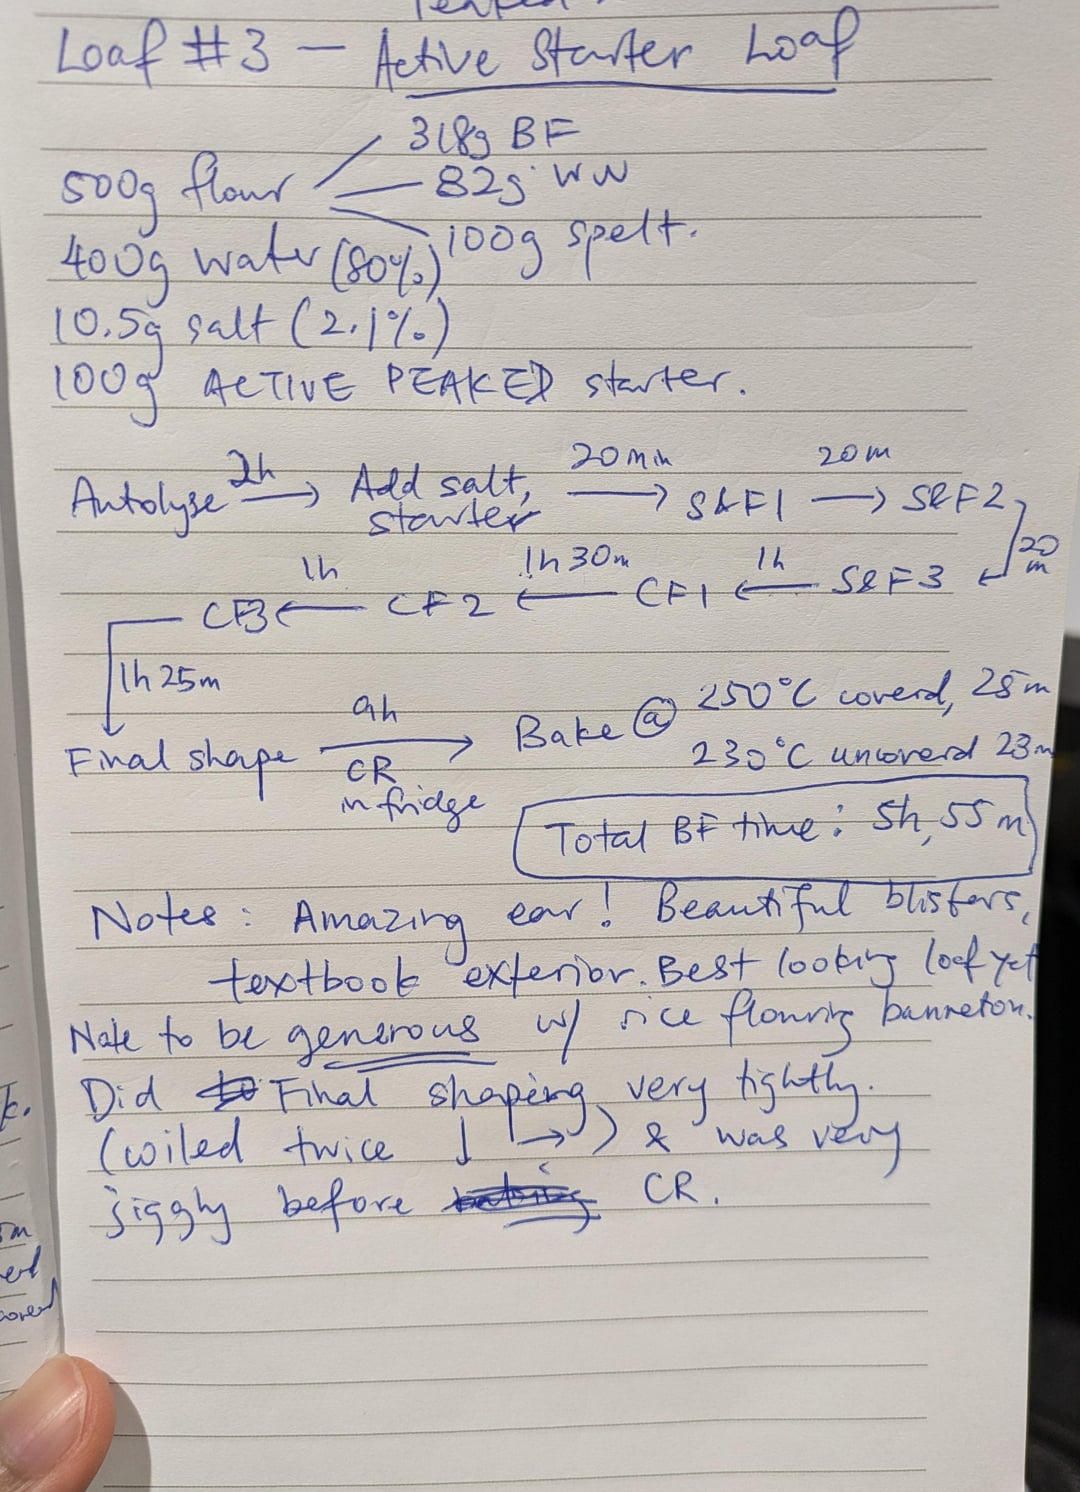 Loaf #3 — Active Starter Loaf
318g BF
500g flour 82g WW
100g spelt.
400g water (80%)
10.5g salt (2.1%)
100g ACTIVE PEAKED starter.
2h 20min 20m
Autolyse → Add salt, → S&F1 → S&F2
starter
20
m
1h 1h30m 1h
CF3 ← CF2 ← CF1 ← S&F3
1h25m
250°C coverd, 25m
9h
Final shape → Bake @
230°C uncoverd 23m
CR
in fridge
Total BF time: 5h, 55m
Notes: Amazing ear! Beautiful blisters,
textbook exterior. Best looking loaf yet
Note to be generous w/ rice flouring banneton.
Did Final shaping very tightly.
(coiled twice ↓ →) & was very
jiggly before CR.